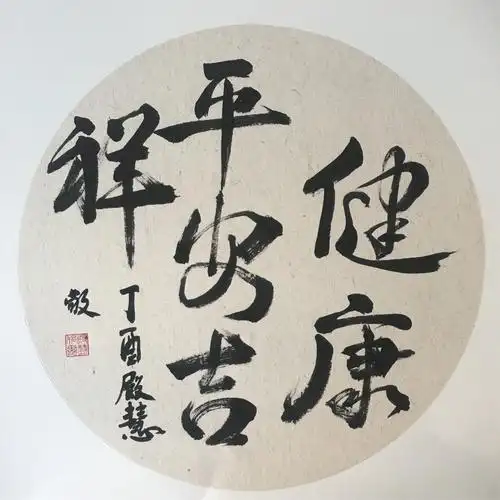 健康
平安吉
祥
丁酉殷慧